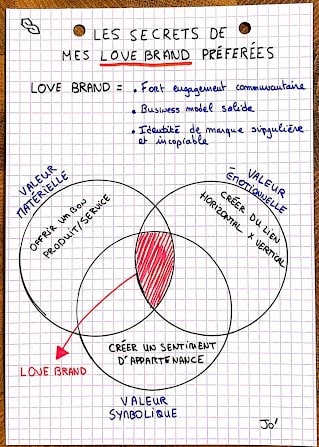 LES SECRETS DE
MES LOVE BRAND PRÉFERÉES
LOVE BRAND = • Fort engagement communautaire
• Business model solide
• Identité de marque singulière
et incopiable
VALEUR
MATÉRIELLE
OFFRIR UN BON
PRODUIT/SERVICE
VALEUR
ÉMOTIONNELLE
CRÉER DU LIEN
HORIZONTAL X VERTICAL
CRÉER UN SENTIMENT
D'APPARTENANCE
LOVE BRAND
VALEUR
SYMBOLIQUE
Jo'